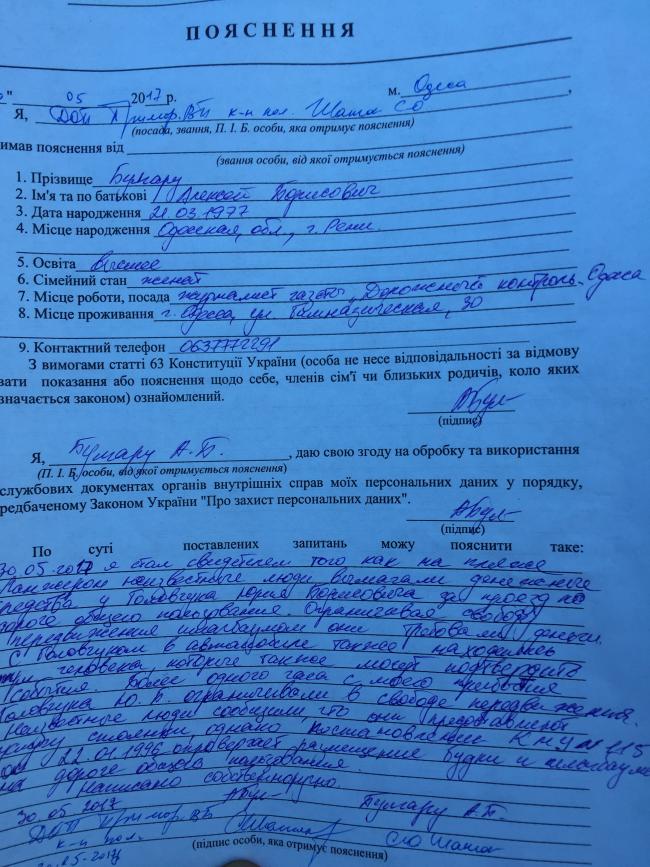 ПОЯСНЕННЯ
" 05 2017 р. м. Одеса
Я, ДОП Примор.ВП к-н пол. Шатна СО ,
(посада, звання, П. І. Б. особи, яка отримує пояснення)
имав пояснення від
(звання особи, від якої отримується пояснення)
1. Прізвище Бумару
2. Ім'я та по батькові Алексей Борисович
3. Дата народження 21.03.1977
4. Місце народження Одесская обл., г. Рени.
5. Освіта высшее
6. Сімейний стан женат
7. Місце роботи, посада журналист газеты "Дорожный контроль-Одесса
8. Місце проживання г. Одесса, ул. Гимназическая, 30
9. Контактний телефон 0637772291
З вимогами статті 63 Конституції України (особа не несе відповідальності за відмову
вати показання або пояснення щодо себе, членів сім'ї чи близьких родичів, коло яких
значається законом) ознайомлений.
(підпис)
Я, Бумару А.Б. , даю свою згоду на обробку та використання
(П. І. Б. особи, від якої отримується пояснення)
службових документах органів внутрішніх справ моїх персональних даних у порядку,
редбаченому Законом України "Про захист персональних даних".
(підпис)
По суті поставлених запитань можу пояснити таке:
30.05.2017 я стал свидетелем того как на пляже
Ланжерон неизвестные люди вымагали денежные
средства у Головчука Юрия Борисовича за проезд по
дороге общего пользования. Ограничивая свободу
передвижения шлагбаумом они требовали деньги.
С Головчуком в автомобиле также находились
три человека которые также могут подтвердить
события. Более одного часа с моего прибытия
Головчука Ю.Б. ограничивали в свободе передвижения.
Неизвестные люди сообщили, что они предоставляют
услугу стоянки, однако постановление КМУ № 115
от 22.01.1996 опровергает размещение будки и шлагбаума
на дороге общего пользования.
Написано собственноручно.
30.05.2017 Бумару А.Б.
ДОП Примор.ВП
к-н пол. СО Шатна
(підпис особи, яка отримує пояснення)
05-2017